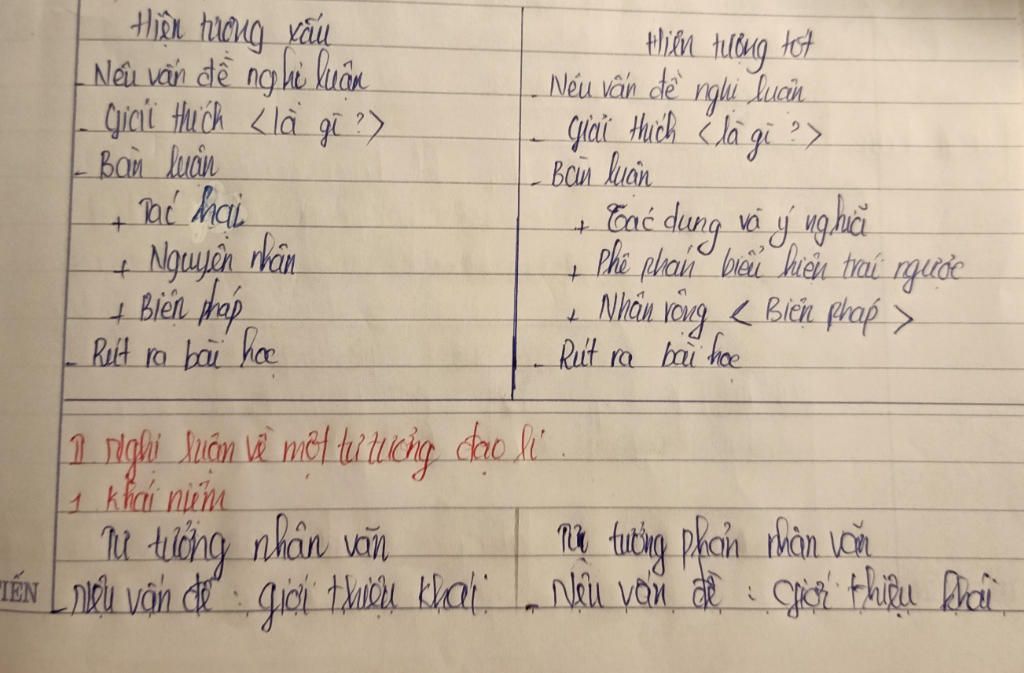 Hiện tượng xấu
- Nêu vấn đề nghị luận
- Giải thích <là gì?>
- Bàn luận
+ Tác hại
+ Nguyên nhân
+ Biện pháp
- Rút ra bài học
Hiện tượng tốt
- Nêu vấn đề nghị luận
- Giải thích <là gì?>
- Bàn luận
+ Tác dụng và ý nghĩa
+ Phê phán biểu hiện trái ngược
+ Nhân rộng <Biện pháp>
- Rút ra bài học
II Nghị luận về một tư tưởng đạo lí.
1 Khái niệm
Tư tưởng nhân văn
- Nêu vấn đề: giới thiệu khái
Tư tưởng phản nhân văn
- Nêu vấn đề: Giới thiệu khái
IẾN